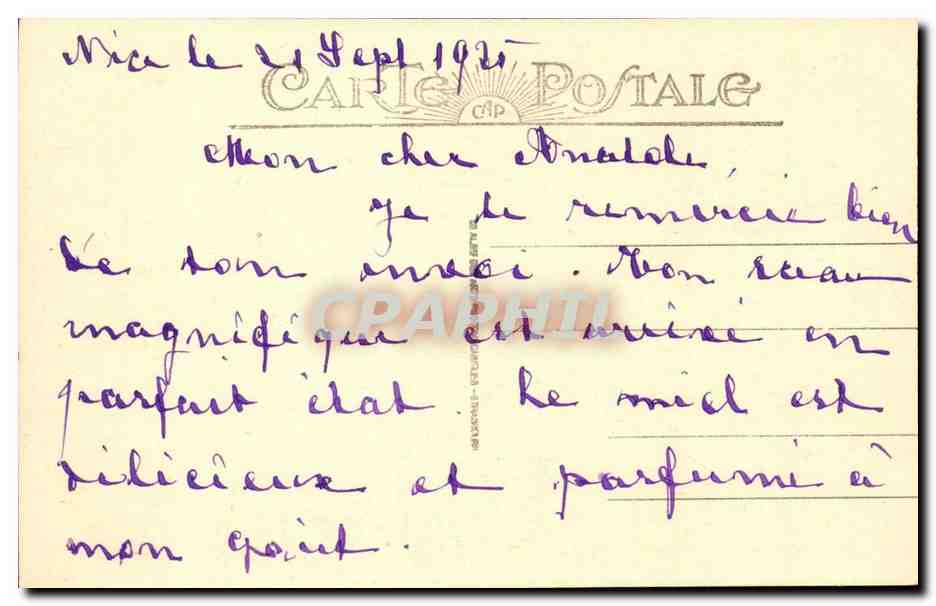 Nice le 21 Sept 1925
CARTE POSTALE
CAP
Mon cher Anatole,
Je te remercie bien
de ton envoi. Mon seau
magnifique est arrivé en
CPARPHIL
parfait état. Le miel est
délicieux et parfumé à
mon goût.